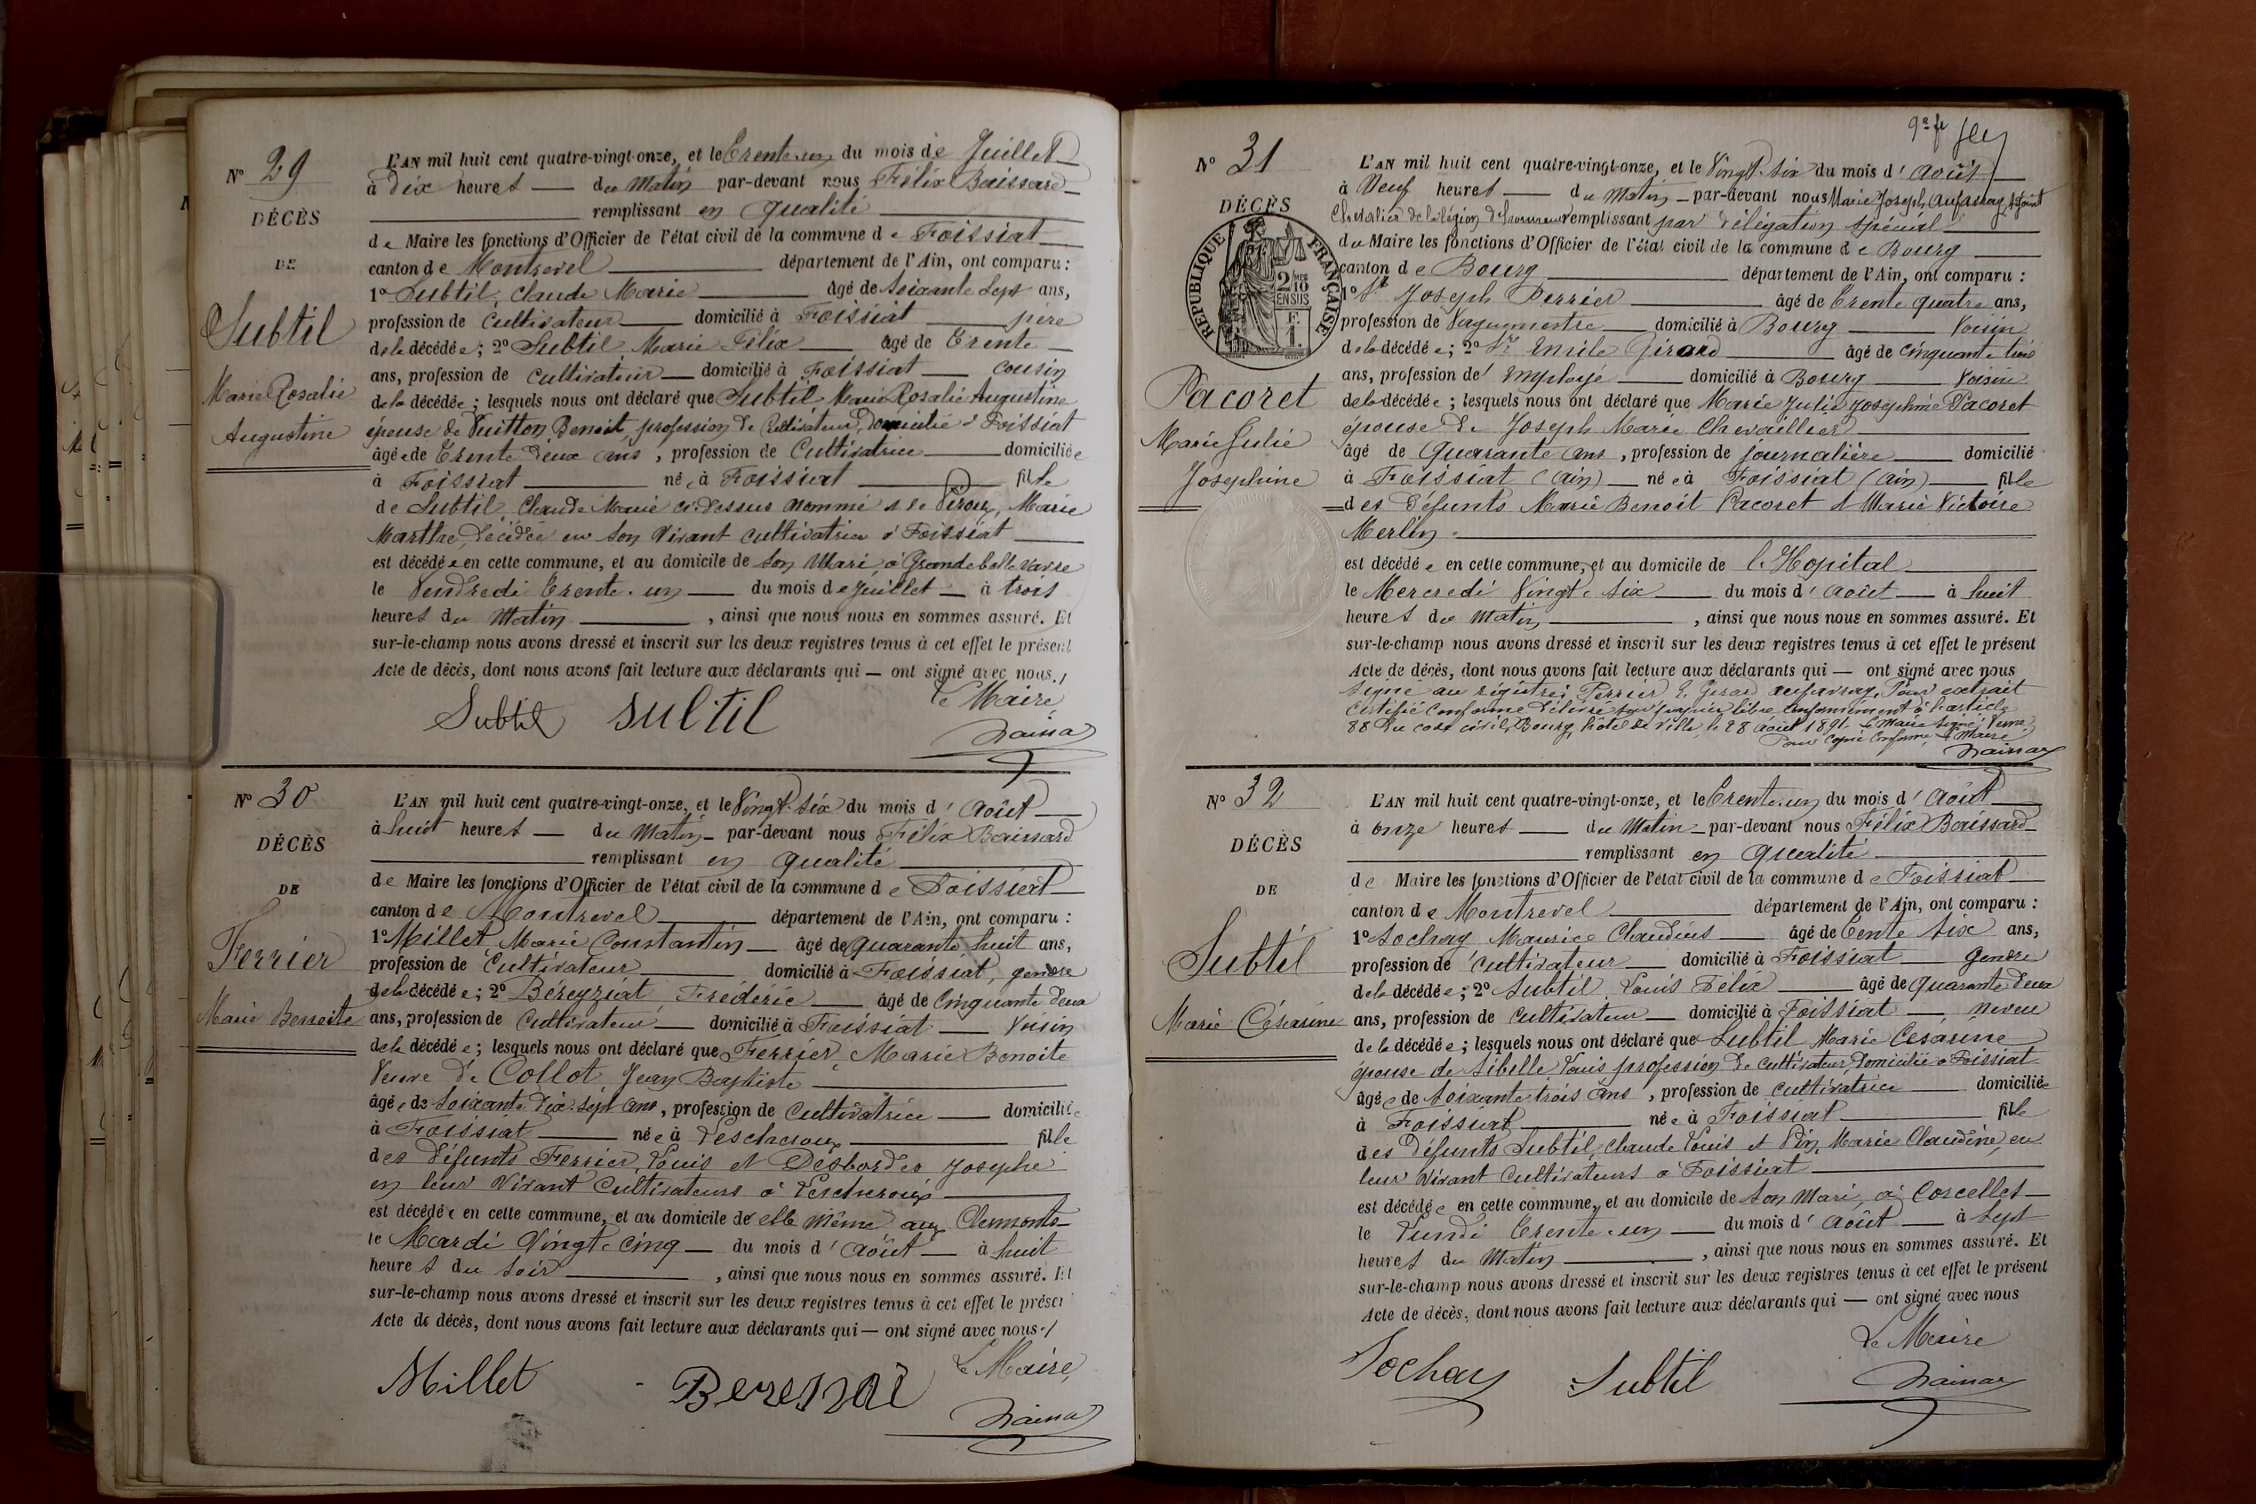 N° 29
DÉCÈS
DE
Subtil
Marie Rosalie
Augustine
L'AN mil huit cent quatre-vingt-onze, et le Trente-un du mois de Juillet
à Dix heures du Matin par-devant nous Félix Baissard
remplissant en qualité
de Maire les fonctions d'Officier de l'état civil de la commune de Foissiat
canton de Montrevel département de l'Ain, ont comparu :
1° Subtil, Claude Marie âgé de Soixante Sept ans,
profession de Cultivateur domicilié à Foissiat père
de la décédée ; 2° Subtil Marie Félix âgé de Trente
ans, profession de cultivateur domicilié à Foissiat cousin
de la décédée ; lesquels nous ont déclaré que Subtil Marie Rosalie Augustine
épouse de Vuitton Benoit, profession de Cultivateur, domicilié à Foissiat
âgée de Trente deux ans, profession de Cultivatrice domiciliée
à Foissiat née à Foissiat fille
de Subtil Claude Marie ci-dessus nommé et de Marie
Marthe, décédée en son vivant cultivatrice à Foissiat
est décédée en cette commune, et au domicile de son Mari à Grandebellevavre
le Vendredi Trente-un du mois de Juillet à trois
heures du Matin, ainsi que nous nous en sommes assuré. Et
sur-le-champ nous avons dressé et inscrit sur les deux registres tenus à cet effet le présent
Acte de décès, dont nous avons fait lecture aux déclarants qui — ont signé avec nous.
Le Maire
Subtil Subtil
N° 30
DÉCÈS
DE
Ferrier
Marie Benoite
L'AN mil huit cent quatre-vingt-onze, et le Vingt-six du mois d'Août
à huit heures du Matin par-devant nous Félix Baissard
remplissant en qualité
de Maire les fonctions d'Officier de l'état civil de la commune de Foissiat
canton de Montrevel département de l'Ain, ont comparu :
1° Millet Marie Constantin âgé de quarante huit ans,
profession de Cultivateur domicilié à Foissiat, gendre
de la décédée ; 2° Béreyziat Frédéric âgé de Cinquante deux
ans, profession de Cultivateur domicilié à Foissiat Voisin
de la décédée ; lesquels nous ont déclaré que Ferrier, Marie Benoite
Veuve de Collot, Jean Baptiste
âgée de Soixante Dix-sept ans, profession de Cultivatrice domiciliée
à Foissiat née à Lescheroux fille
des défunts Ferrier, Louis et Desbordes Josephe
en leur vivant Cultivateurs à Lescheroux
est décédée en cette commune, et au domicile de elle même aux Clermonts
le Mardi Vingt-cinq du mois d'Août à huit
heures du Soir, ainsi que nous nous en sommes assuré. Et
sur-le-champ nous avons dressé et inscrit sur les deux registres tenus à cet effet le présent
Acte de décès, dont nous avons fait lecture aux déclarants qui — ont signé avec nous.
Le Maire,
Millet
N° 31
DÉCÈS
RÉPUBLIQUE FRANÇAISE
2/10 EN SUS
F. 1.
Pacoret
Marie Julie
Josephine
9e
L'AN mil huit cent quatre-vingt-onze, et le Vingt-six du mois d'août
à Neuf heures du Matin par-devant nous Marie Joseph Aufavray, adjoint
Chevalier de la légion d'honneur remplissant par délégation spécial
du Maire les fonctions d'Officier de l'état civil de la commune de Bourg
canton de Bourg département de l'Ain, ont comparu :
1° Sr Joseph Perrier âgé de Trente quatre ans,
profession de Vaguemestre domicilié à Bourg Voisin
de la décédée ; 2° Sr Emile Girard âgé de Cinquante trois
ans, profession d'employé domicilié à Bourg Voisin
de la décédée ; lesquels nous ont déclaré que Marie Julie Josephine Pacoret
épouse de Joseph Marie Chevaillier
âgé de Quarante ans, profession de journalière domicilié
à Foissiat (ain) née à Foissiat (ain) fille
des défunts Marie Benoit Pacoret et Marie Victoire
Merlin
est décédée en cette commune, et au domicile de l'Hopital
le Mercredi Vingt-six du mois d'août à huit
heures du Matin, ainsi que nous nous en sommes assuré. Et
sur-le-champ nous avons dressé et inscrit sur les deux registres tenus à cet effet le présent
Acte de décès, dont nous avons fait lecture aux déclarants qui — ont signé avec nous
Signé au registre Perrier, E. Girard, Aufavray, Pour extrait
Certifié conforme délivré sur papier libre conformément à l'article
88 du code civil, Bourg, hôtel de Ville, le 28 août 1891. Le Maire signé
Pour copie conforme, le Maire
N° 32
DÉCÈS
DE
Subtil
Marie Césarine
L'AN mil huit cent quatre-vingt-onze, et le Trente-un du mois d'Août
à onze heures du Matin par-devant nous Félix Baissard
remplissant en qualité
de Maire les fonctions d'Officier de l'état civil de la commune de Foissiat
canton de Montrevel département de l'Ain, ont comparu :
1° Sochay Maurice Claudius âgé de Trente Six ans,
profession de cultivateur domicilié à Foissiat gendre
de la décédée ; 2° Subtil Louis Félix âgé de quarante Deux
ans, profession de cultivateur domicilié à Foissiat neveu
de la décédée ; lesquels nous ont déclaré que Subtil Marie Césarine
épouse de Sibelle Louis profession de cultivateur, domicilié à Foissiat
âgée de Soixante trois ans, profession de cultivatrice domiciliée
à Foissiat née à Foissiat fille
des défunts Subtil, Claude Louis et Marie Claudine, en
leur vivant cultivateurs à Foissiat
est décédée en cette commune, et au domicile de son mari, à Corcelles
le Lundi Trente-un du mois d'Août à Sept
heures du Matin, ainsi que nous nous en sommes assuré. Et
sur-le-champ nous avons dressé et inscrit sur les deux registres tenus à cet effet le présent
Acte de décès, dont nous avons fait lecture aux déclarants qui — ont signé avec nous
Le Maire
Sochay Subtil